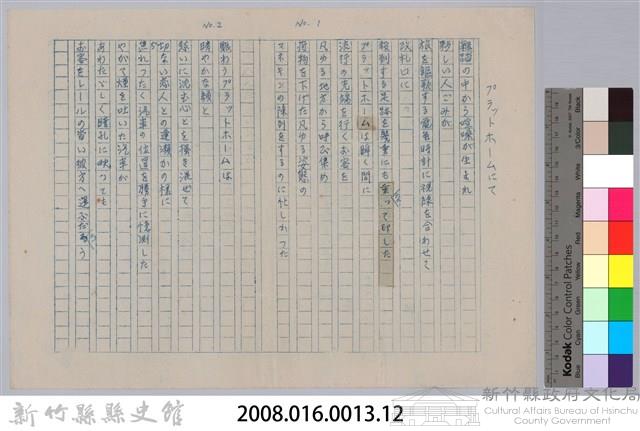 No.1
プラットホームにて
雑踏の中から喧噪が生まれ
夥しい人ごみが
秩を駆歌する電気時計に視線を合わせて
改札口に
殺到する足跡を幾重にも重って印した
プラットホームは瞬く間に
流行の先端を行くお客を
凡ゆる地方から呼び集め
荷物を下げた凡ゆる姿態の
マネキンの陳列をするのに忙しかった
No.2
賑わうプラットホームは
晴やかな顔と
暗いに沈む心とを掻き混ぜて
切ない恋人との逢瀬かの様に
焦れったく汽車の位置を勝手に憶測した
やがて煙を吐いた汽車が
あわただしく瞳孔に映っても
お客をレールの蒼い彼方へ運ぶだろう
新竹縣縣史館
2008.016.0013.12
新竹縣政府文化局
Cultural Affairs Bureau of Hsinchu
County Government
Kodak Color Control Patches
Blue
Cyan
Green
Yellow
Red
Magenta
White
3/Color
Black